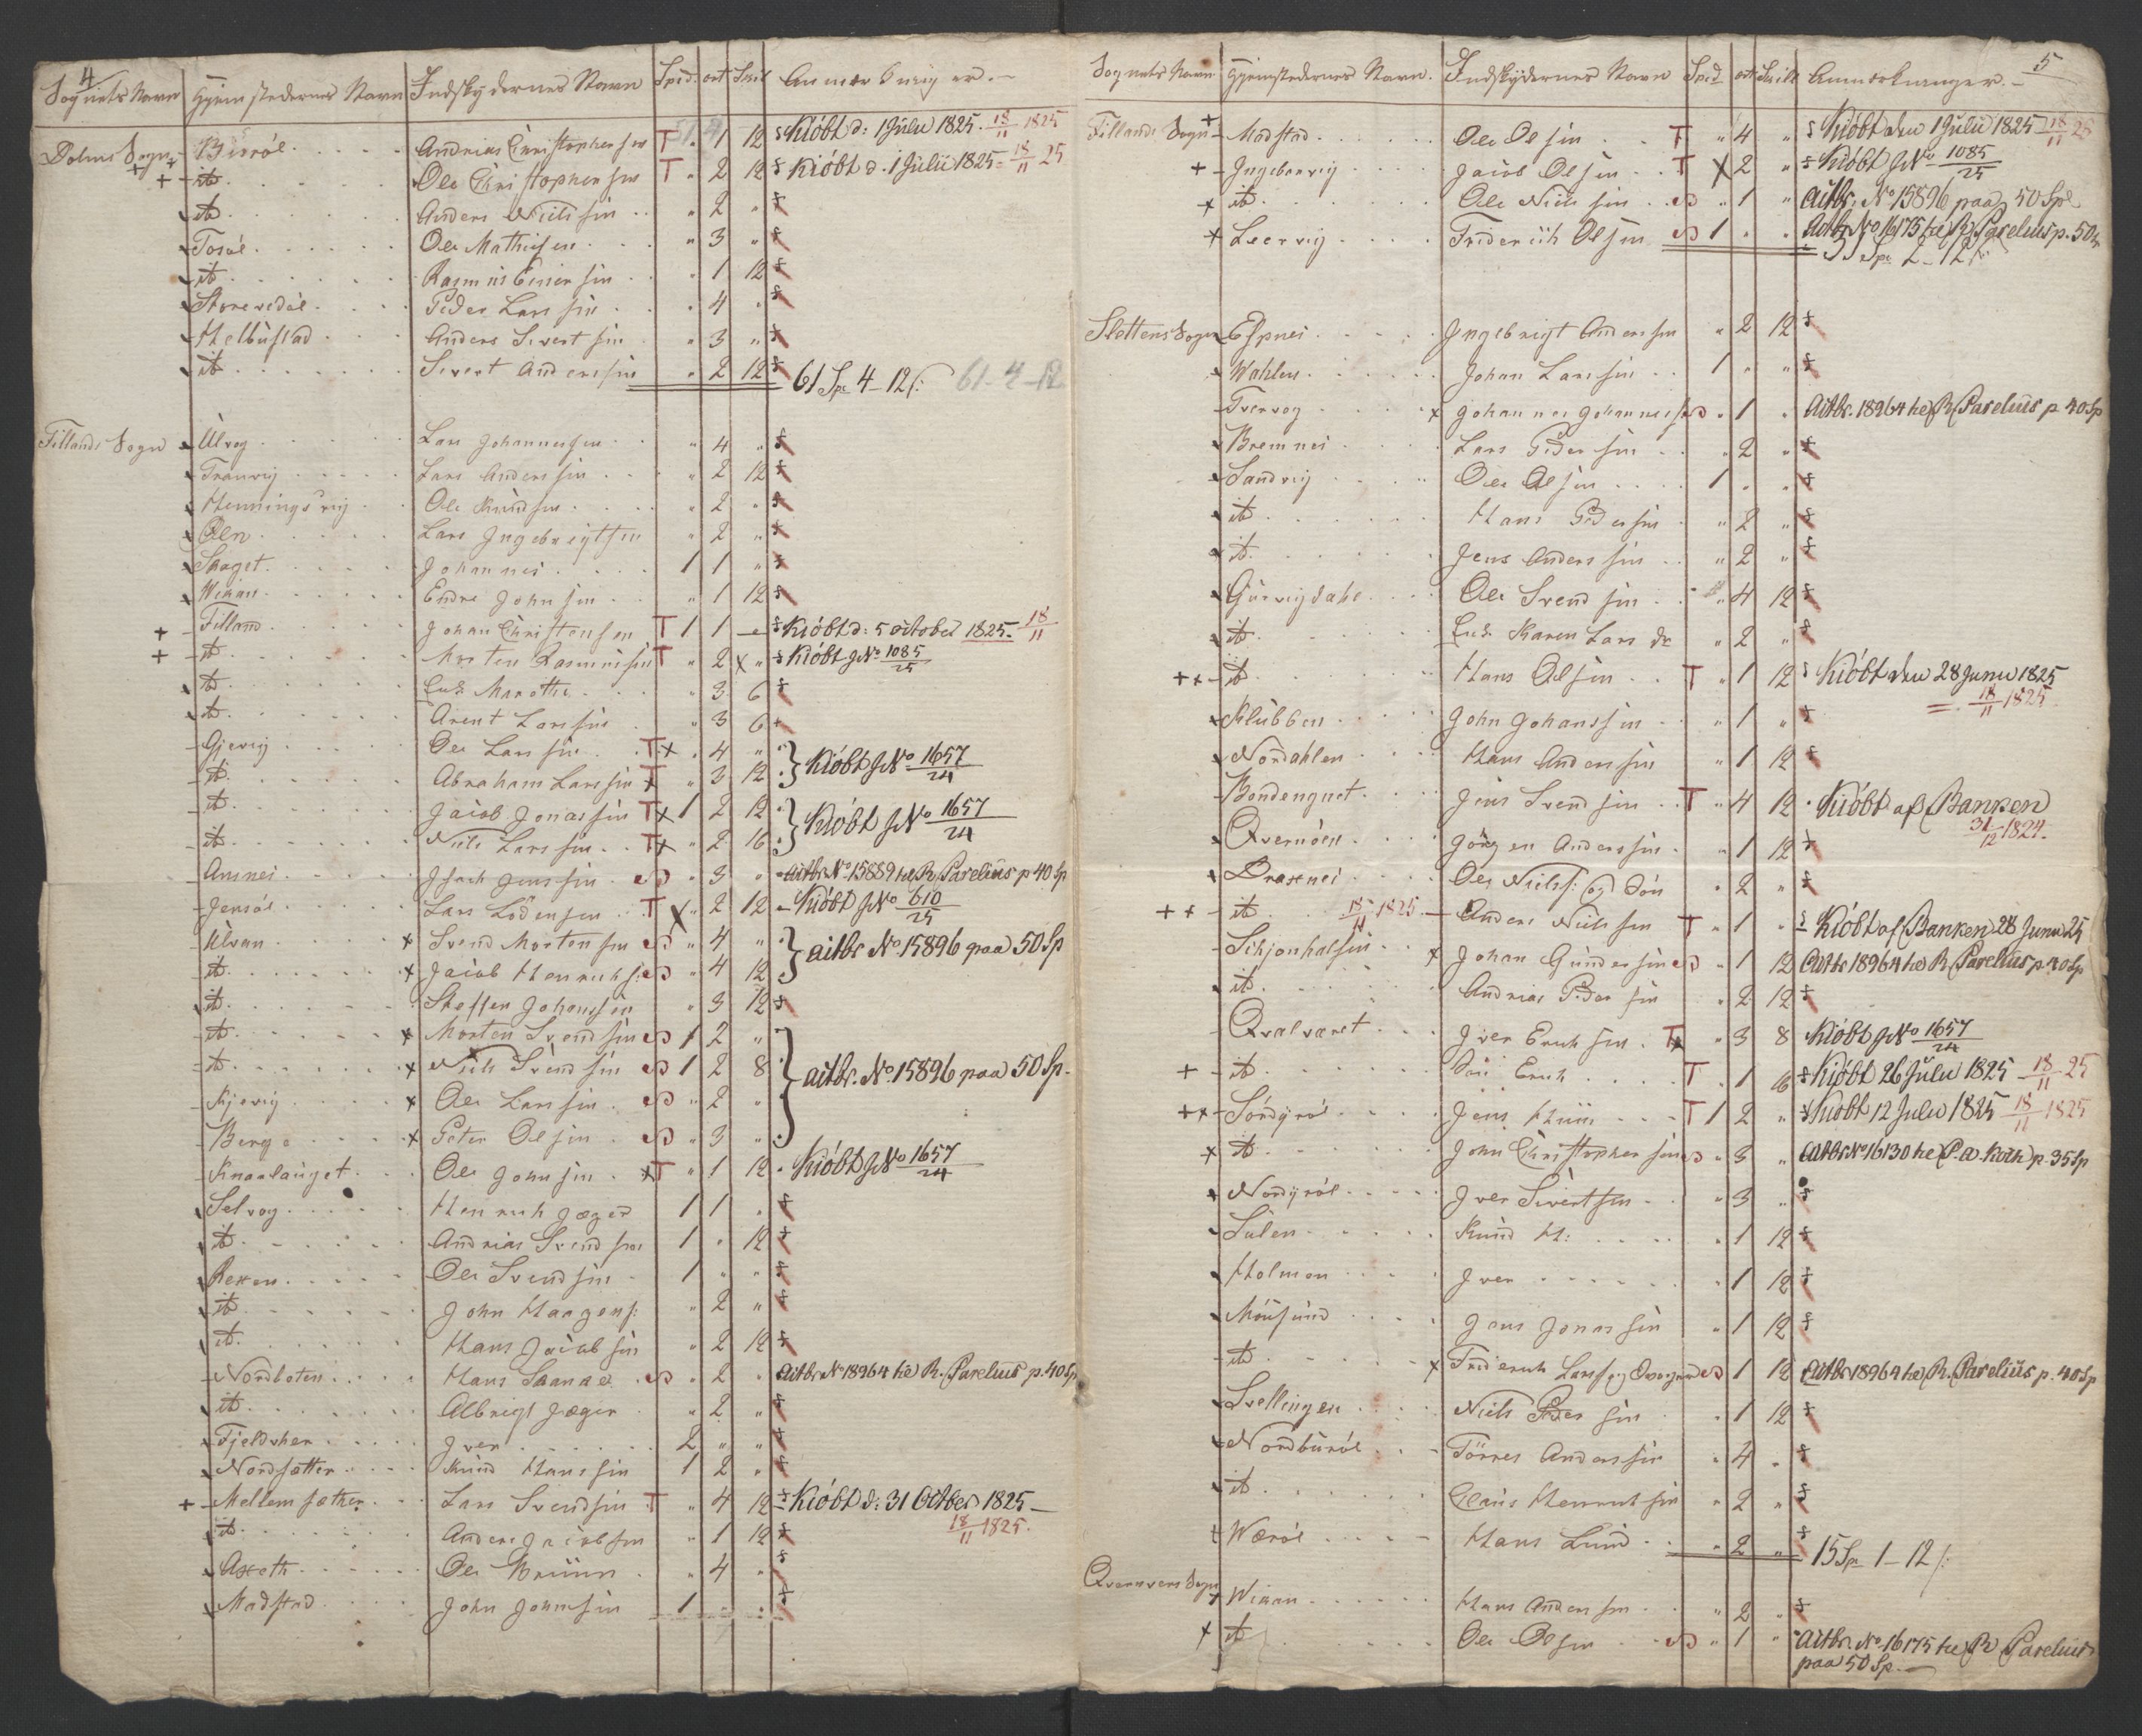 4
Sognets Navn Hjemstedernes Navn Indskydernes Navn Spd. ort Skil Anmærkninger.
Dolms Sogn Bisröl Andrias Christophersen T " 1 12 Kiöbt d: 1 Julii 1825. 18/11 1825
it Ole Christophersen T " 2 12 Kiöbt d. 1 Julii 1825 18/11 25
it Anders Nielsen " 2 "
Tosöl Ole Mathisen " 3 "
it Rasmus Einersen " 1 12
Storevedöl Peder Larssen " 4 "
Helbustad Anders Sivertsen " 3 "
it Sivert Anderssen " 2 12 61 Sp 4 – 12 s: 61-4-12
Fillands Sogn Ulvog Lars Johannessen " 4 "
Tranvig Lars Anderssen " 2 12
Hennings vig Ole Knudsen " 2 "
Öen Lars Ingebrigtsen " 2 "
Skaget Johannes 1 1 "
Wikan Endre Johnsen " 1 12
Filland Johan Christensen T 1 1 – Kiöbt d: 5 october 1825. 18/11
it Morten Rasmussen T " 2 x " Kiöbt J No 1085/25
it Enk. Marethe " 3 6
it Arent Larssen " 3 6
Gjevig Ole Larssen T x " 4 " } Kiöbt J No 1657/24
it Abraham Larssen T " 3 12
it Jacob Jonassen T x 1 2 12 } Kiöbt J No 1657/24
it Niels Larssen T x " 2 16
Ansnes Isach Jenssen " 3 " aitbr No 15889 he R. Parelius p 40 Sp
Jensöl Lars Lodensen T x " 2 12 Kiöbt J No 610/25
Ulvan x Svend Mortensen " 4 " } aitbr No 15896 paa 50 Sp
it x Jacob Henrichs: " 4 12
it Steffen Johanssen " 3 12
it x Morten Svendsen 1 2 " } aitbr. No 15896 paa 50 Sp.
it x Niels Svendsen 1 2 8
Kjevig x Ole Larssen " 2 "
Berge x Peter Olsen " 3 "
Knarlauget Ole Johnsen x T " 1 12 Kiöbt J No 1657/24
Selvog Henrich Jæger 1 1 "
it Andrias Svendsen 1 " 12
Rexen Ole Svendsen 1 " "
it John Haagens: " 2 "
it Hans Jacobsen " 2 12
Nordboten Hans Skanke " 2 " aitbr No 18964 he R. Parelius p. 40 Sp
it Albrigt Jæger " 2 "
Fjeldvær Iver 2 " "
Nordsætter Knud Hanssen 1 2 "
Mellem sæther Lars Svendsen T " 4 12 Kiöbt d: 31 Octber 1825
18/11 1825.
it Anders Jacobsen " 1 12
Axeth Ole Bruun " 4 "
Madstad John Johnsen 1 " "
5
Sognets Navn Hjemstedernes Navn. Indskydernes Navn Spd ort Skill Anmærkninger.
Fillands Sogn Madstad Ole Olsen T " 4 " Kiöbt den 1 Julii 1825 18/11 25
Ingebervig Jacob Olsen T x 2 " Kiöbt J No 1085/25
x it Ole Nielssen " 1 " aitbr. No 15896 paa 50 Spd
x Leervig Friderich Olsen 1 " " Aitbr No 16175 he R. Parelius p. 50 Sp
33 Sp 2 – 12 s:
Slettens Sogn Espnes Ingebrigt Anderssen " 2 12
Wahlen Johan Larssen 1 " "
Tvervog x Johannes Johannessen " 1 " Aitbr. 18964 he R Parelius p 40 Sp
Bremnes Lars Pedersen " 2 "
Sandvig Ole Olsen 1 " "
it Hans Pedersen " 2 "
it Jens Anderssen " 2 "
Gurvigdahl Ole Svendsen " 4 12
it Enk. Karen Lars dr " 2 "
it Hans Olsen T " 1 12 Kiöbt den 28 Junii 1825
18/11 1825
Klubben John Johanssen " 1 "
Nordahlen Hans Anderssen " 1 12
Bondengnet Jens Svendsen T " 4 12 Kiöbt af Banken
31/12 1824.
Qvernöen Jörgen Anderssen " 1 12
Draxnes Ole Niels: og Sön " 2 "
it 18/11 1825 Anders Nielssen T " 1 " Kiöbt af Banken 28 Junii 25
Sikjonhalsen x Johan Gundersen " 1 12 Aitbr 18964 he R. Parelius p 40 Sp
it Andrias Pedersen " 2 12
Qvalværet Iver Erichsen T x " 3 8 Kiöbt J No 1657/24
it Erich T " 1 16 Kiöbt 26 Julii 1825 18/11 25
Sördyröl Jens Huus T 1 2 " Kiöbt 12 Julii 1825 18/11 1825
x it John Christophersen " 3 " aitbr No 16130 he P. A. Koch p 35 Sp
Nordyröl Iver Sivertsen " 3 "
Sulen Knud H: " 1 12
Holmen Iver " 1 12
Mausund Jens Jonassen " 1 12
it x Friderich Larss og Svoger " 1 12 Aitbr 18964 he R. Parelius p. 40 Sp
Svellingen Niels Pedersen " 1 12
Nordburöl Törres Anderssen " 4 "
it Claus Henrichsen " 2 "
Wæröl Hans Lund " 2 " 15 Sp 1 – 12 s:
Qvenvers Sogn Wikan Hans Anderssen " 2 "
x it Ole Olsen " 1 " Aitbr. No 16175 he R Parelius
paa 50 Sp.